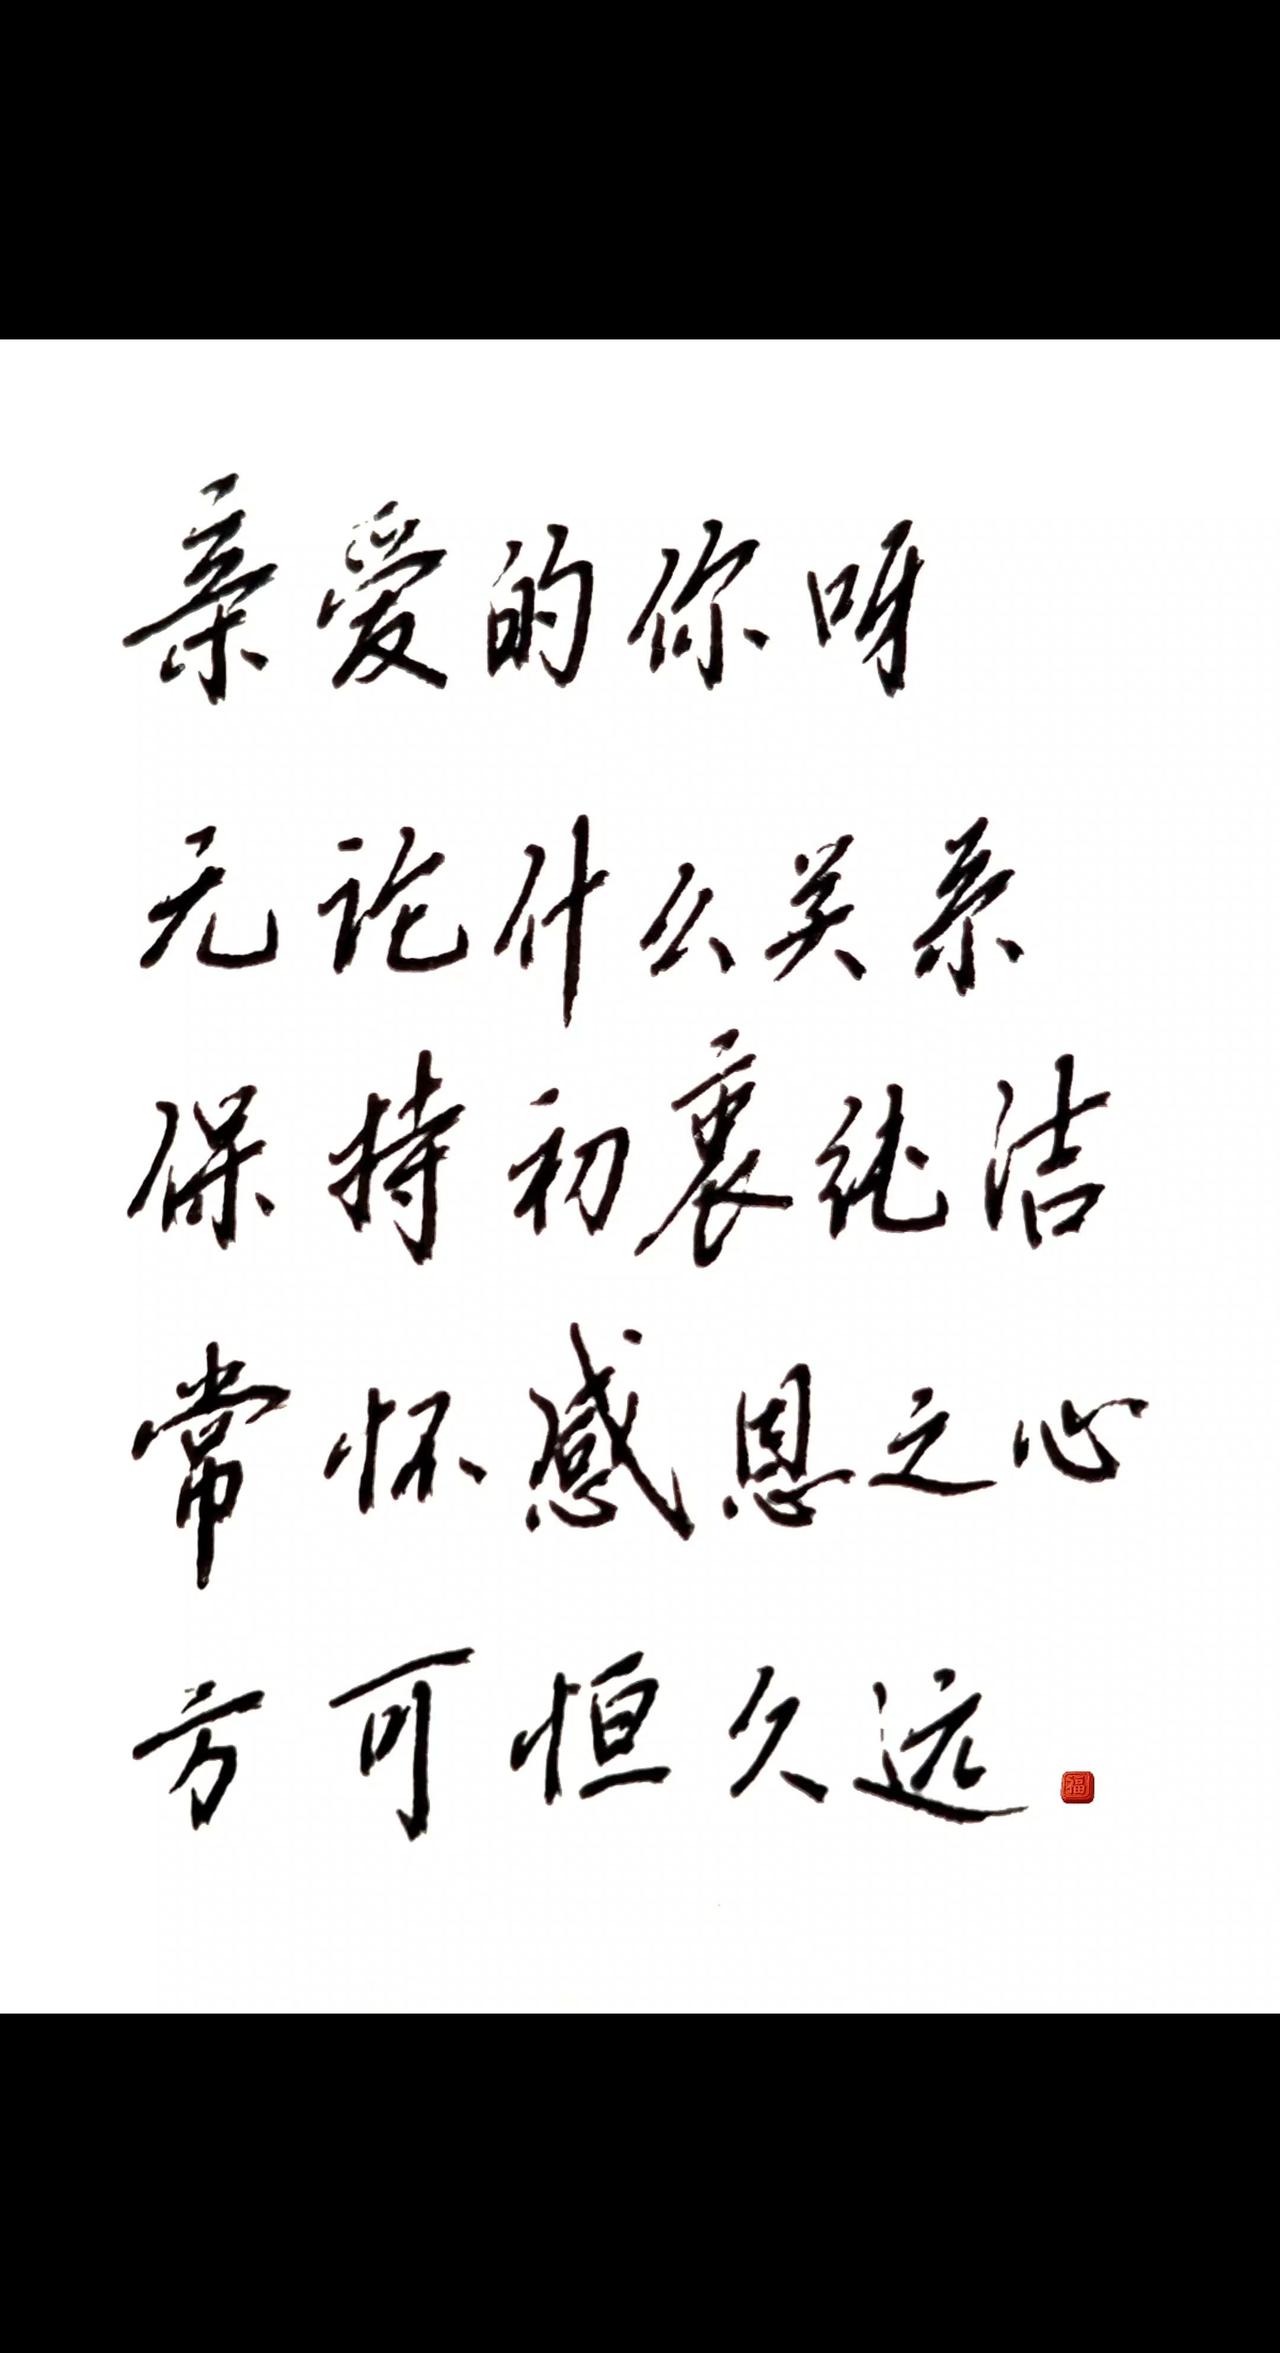 亲爱的你呀
无论什么关系
保持初衷纯洁
常怀感恩之心
方可恒久远
福